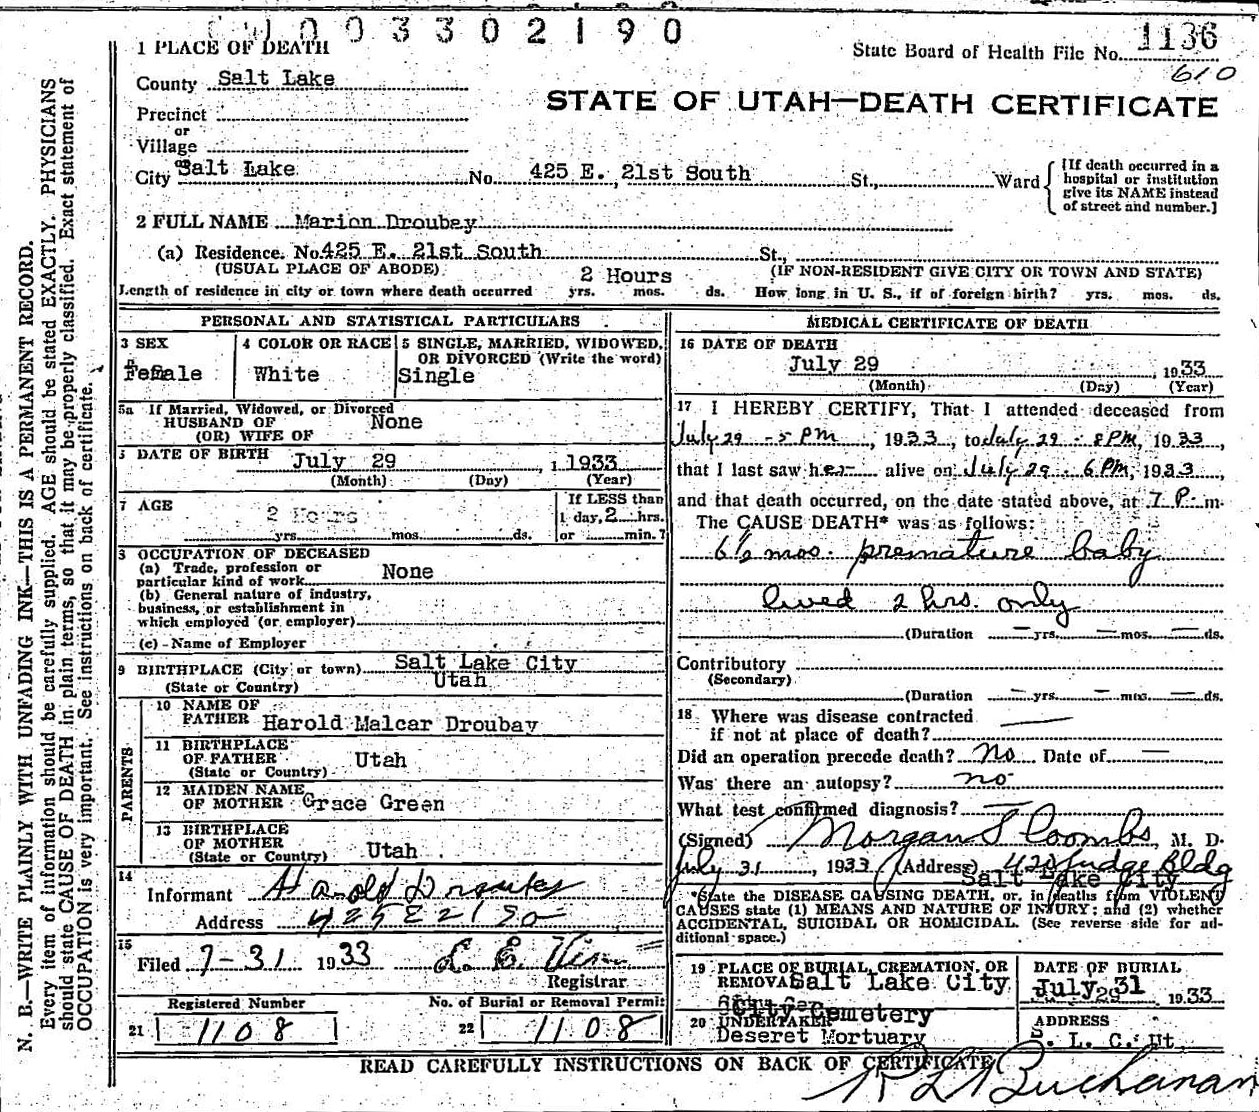 003302190
1 PLACE OF DEATH
State Board of Health File No. 1136
610
County Salt Lake
STATE OF UTAH—DEATH CERTIFICATE
Precinct
or
Village
City Salt Lake No. 425 E. 21st South St., Ward
[If death occurred in a
hospital or institution
give its NAME instead
of street and number.]
2 FULL NAME Marion Droubay
(a) Residence. No. 425 E. 21st South St.,
(USUAL PLACE OF ABODE) (IF NON-RESIDENT GIVE CITY OR TOWN AND STATE)
2 Hours
Length of residence in city or town where death occurred yrs. mos. ds. How long in U. S., if of foreign birth? yrs. mos. ds.
PERSONAL AND STATISTICAL PARTICULARS
3 SEX
Female
4 COLOR OR RACE
White
5 SINGLE, MARRIED, WIDOWED,
OR DIVORCED (Write the word)
Single
5a If Married, Widowed, or Divorced
HUSBAND OF
(OR) WIFE OF
None
DATE OF BIRTH July 29, 1933
(Month) (Day) (Year)
7 AGE
2 Hours
yrs. mos. ds.
If LESS than
1 day, 2 hrs.
or min.?
8 OCCUPATION OF DECEASED
(a) Trade, profession or
particular kind of work None
(b) General nature of industry,
business, or establishment in
which employed (or employer)
(c) Name of Employer
9 BIRTHPLACE (City or town) Salt Lake City
(State or Country) Utah
PARENTS
10 NAME OF
FATHER Harold Malcar Droubay
11 BIRTHPLACE
OF FATHER
(State or Country) Utah
12 MAIDEN NAME
OF MOTHER Grace Green
13 BIRTHPLACE
OF MOTHER
(State or Country) Utah
14
Informant Harold Droubay
Address 425 E 21 So
15
Filed 7-31 1933
Registrar
Registered Number
21 1108
No. of Burial or Removal Permit
22 1108
MEDICAL CERTIFICATE OF DEATH
16 DATE OF DEATH
July 29, 1933
(Month) (Day) (Year)
17 I HEREBY CERTIFY, That I attended deceased from
July 29 - 5 PM, 1933, to July 29 - 8 PM, 1933,
that I last saw her alive on July 29 - 6 PM, 1933,
and that death occurred, on the date stated above, at 7 P. m.
The CAUSE DEATH* was as follows:
6½ mos. premature baby
lived 2 hrs. only
(Duration — yrs. — mos. — ds.
Contributory
(Secondary)
(Duration — yrs. — mos. — ds.
18 Where was disease contracted
if not at place of death? —
Did an operation precede death? No Date of —
Was there an autopsy? no
What test confirmed diagnosis? —
(Signed) Morgan S Coombs, M. D.
July 31, 1933 (Address) 420 Judge Bldg
Salt Lake City
*State the DISEASE CAUSING DEATH, or, in deaths from VIOLENT
CAUSES state (1) MEANS AND NATURE OF INJURY; and (2) whether
ACCIDENTAL, SUICIDAL OR HOMICIDAL. (See reverse side for ad-
ditional space.)
19 PLACE OF BURIAL, CREMATION, OR
REMOVAL Salt Lake City
City Cemetery
DATE OF BURIAL
July 31 1933
20 UNDERTAKER
Deseret Mortuary
ADDRESS
S. L. C. Ut.
READ CAREFULLY INSTRUCTIONS ON BACK OF CERTIFICATE
R L Buchanan
N. B.—WRITE PLAINLY WITH UNFADING INK—THIS IS A PERMANENT RECORD.
Every item of information should be carefully supplied. AGE should be stated EXACTLY. PHYSICIANS
should state CAUSE OF DEATH in plain terms, so that it may be properly classified. Exact statement of
OCCUPATION is very important. See instructions on back of certificate.